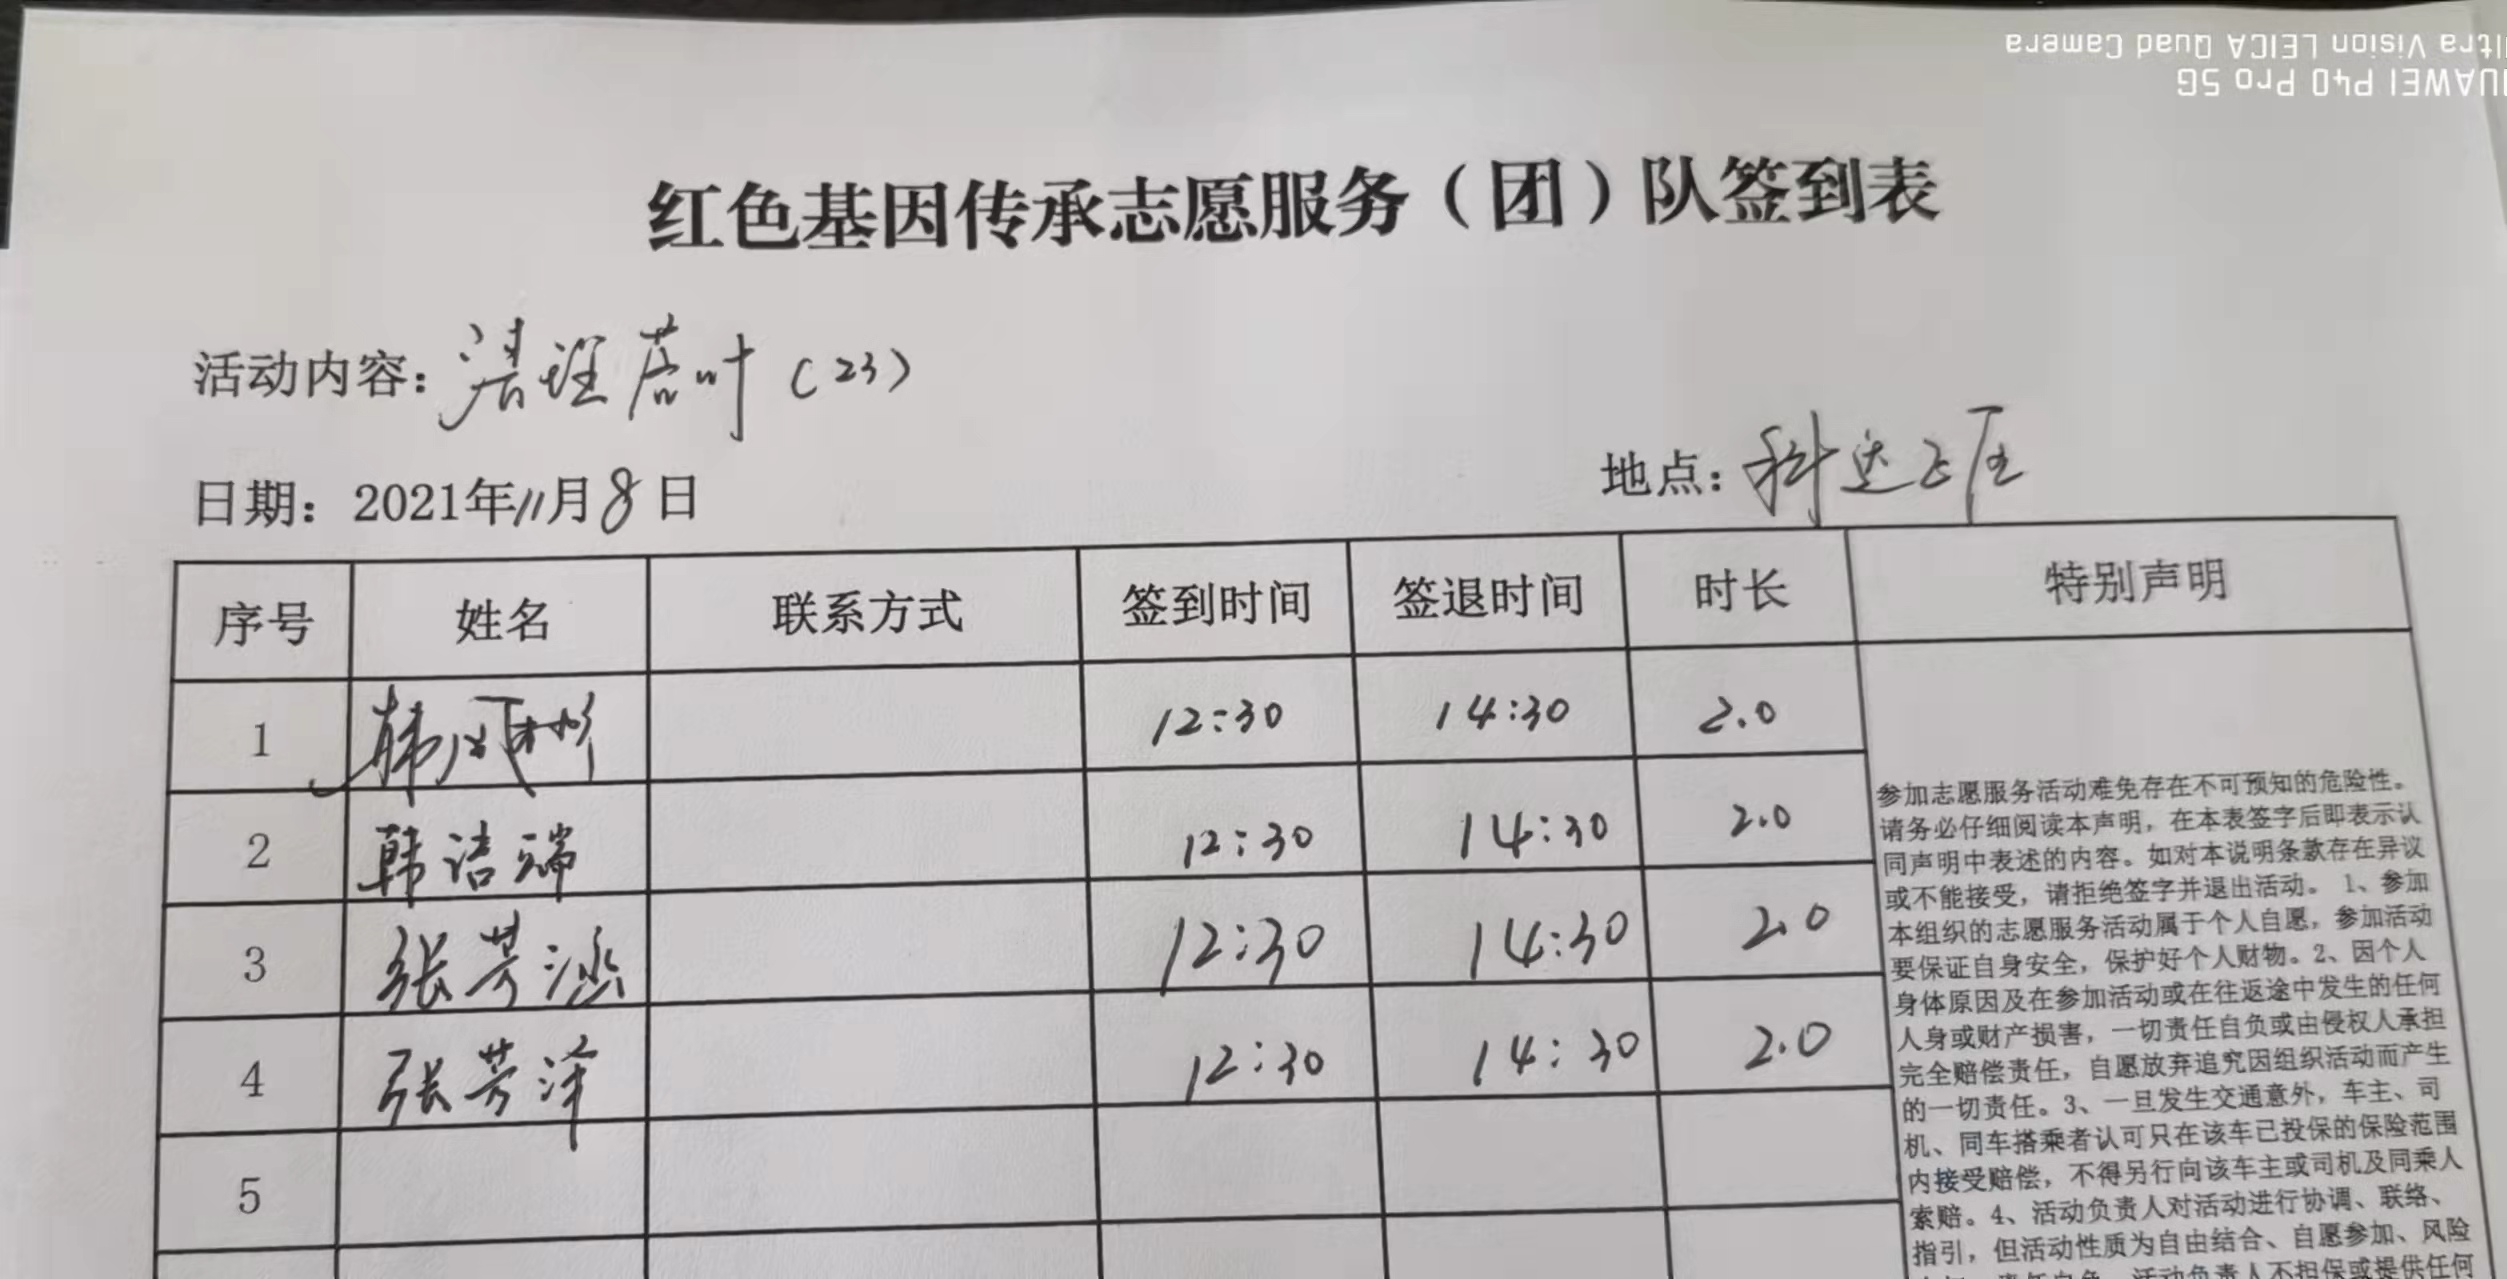 Ultra Vision LEICA Quad Camera
HUAWEI P40 Pro 5G
红色基因传承志愿服务（团）队签到表
活动内容：清理落叶（23）
日期：2021年11月8日
地点：科达
序号 姓名 联系方式 签到时间 签退时间 时长 特别声明
1 韩凤彬 12:30 14:30 2.0
2 韩洁瑞 12:30 14:30 2.0
3 张芳涵 12:30 14:30 2.0
4 张芳泽 12:30 14:30 2.0
5
参加志愿服务活动难免存在不可预知的危险性。
请务必仔细阅读本声明，在本表签字后即表示认
同声明中表述的内容。如对本说明条款存在异议
或不能接受，请拒绝签字并退出活动。1、参加
本组织的志愿服务活动属于个人自愿，参加活动
要保证自身安全，保护好个人财物。2、因个人
身体原因及在参加活动或在往返途中发生的任何
人身或财产损害，一切责任自负或由侵权人承担
完全赔偿责任，自愿放弃追究因组织活动而产生
的一切责任。3、一旦发生交通意外，车主、司
机、同车搭乘者认可只在该车已投保的保险范围
内接受赔偿，不得另行向该车主或司机及同乘人
索赔。4、活动负责人对活动进行协调、联络、
指引，但活动性质为自由结合、自愿参加、风险
活动负责人不担保或提供任何